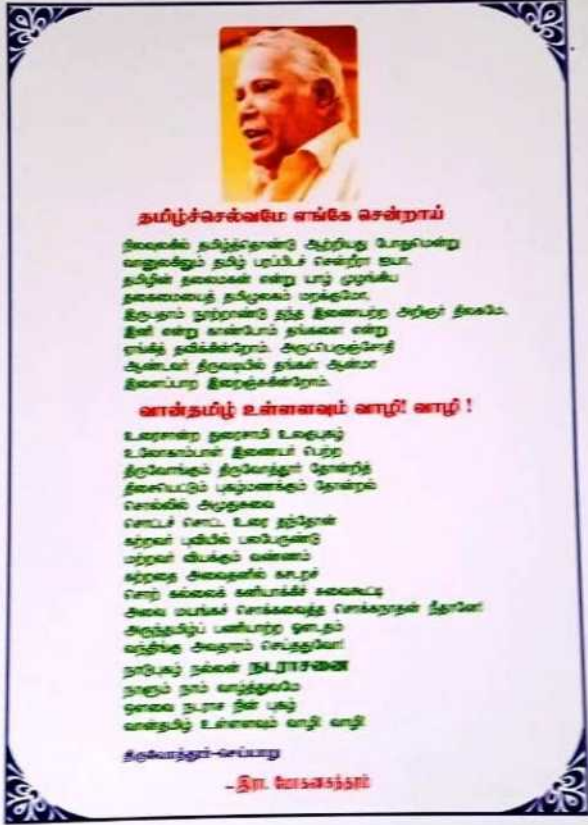 தமிழ்ச்செல்வமே எங்கே சென்றாய்
நிலவுலகில் தமிழ்த்தொண்டு ஆற்றியது போதுமென்று
வானுலகிலும் தமிழ் பரப்பிடச் சென்றீரா ஐயா.
தமிழின் தலைமகன் என்று யாழ் முழங்கிய
தகைமையைத் தமிழுலகம் மறக்குமோ,
இருபதாம் நூற்றாண்டு தந்த இணையற்ற அறிஞர் திலகமே.
இனி என்று காண்போம் தங்களை என்று
ஏங்கித் தவிக்கின்றோம். அருட்பெருஞ்சோதி
ஆண்டவர் திருவடியில் தங்கள் ஆன்மா
இளைப்பாற இறைஞ்சுகின்றோம்.
வான்தமிழ் உள்ளளவும் வாழி! வாழி !
உரைசான்ற துரைசாமி உலகுபுகழ்
உலோகாம்பாள் இணையர் பெற்ற
திருவோங்கும் திருவோத்தூர் தோன்றித்
திசையெட்டும் புகழ்மணக்கும் தோன்றல்
சொல்லில் அமுதுசுவை
சொட்டச் சொட்ட உரை தந்தோன்
கற்றவர் புவியில் பலபேருண்டு
மற்றவர் வியக்கும் வண்ணம்
கற்றதை அவைதனில் கசடறச்
சொற் கல்லைக் கனியாக்கிச் சுவைகூட்டி
அவை மயங்கச் சொக்கவைத்த சொக்கநாதன் நீதானே!
அருந்தமிழ்ப் பணியாற்ற ஔடதம்
வந்திங்கு அவதாரம் செய்ததுவோ!
நாடுபுகழ் நல்லன் நடராசனை
நாளும் நாம் வாழ்த்துவமே
ஔவை நடராச நின் புகழ்
வான்தமிழ் உள்ளளவும் வாழி! வாழி!
திருவோத்தூர்-செய்யாறு
-இரா. மோகனசுந்தரம்